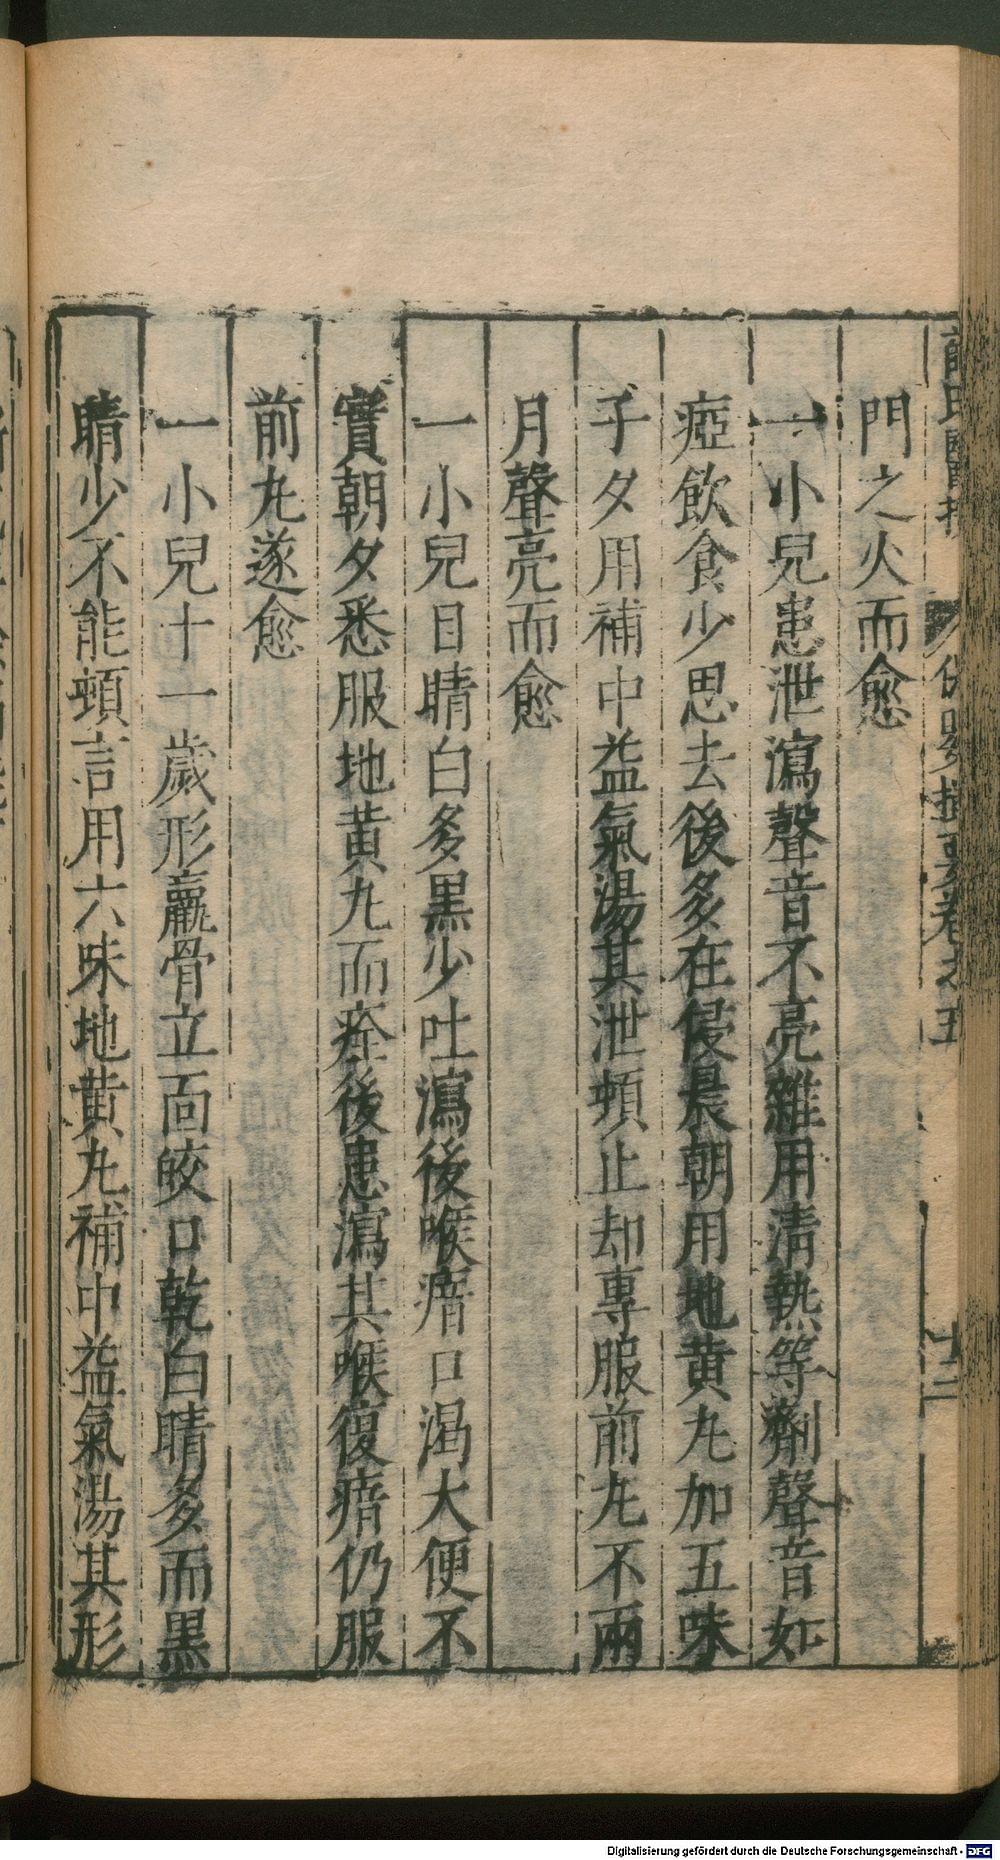 門之火而愈
一小兒患泄瀉聲音不亮雜用清熱等劑聲音如
瘂飲食少思去後多在侵晨朝用地黄九加五味
子夕用補中益氣湯其泄頓止却專服前九不兩
月聲亮而愈
一小兒目睛白多黒少吐瀉後喉瘖口渴大便不
實朝夕悉服地黄九而痊後患瀉其喉復瘖仍服
前九遂愈
一小兒十一歲形羸骨立面皎口乾白睛多而黒
睛少不能頓言用六味地黄九補中益氣湯其形
保嬰撮要卷之五
十二
Digitalisierung gefördert durch die Deutsche Forschungsgemeinschaft - DFG